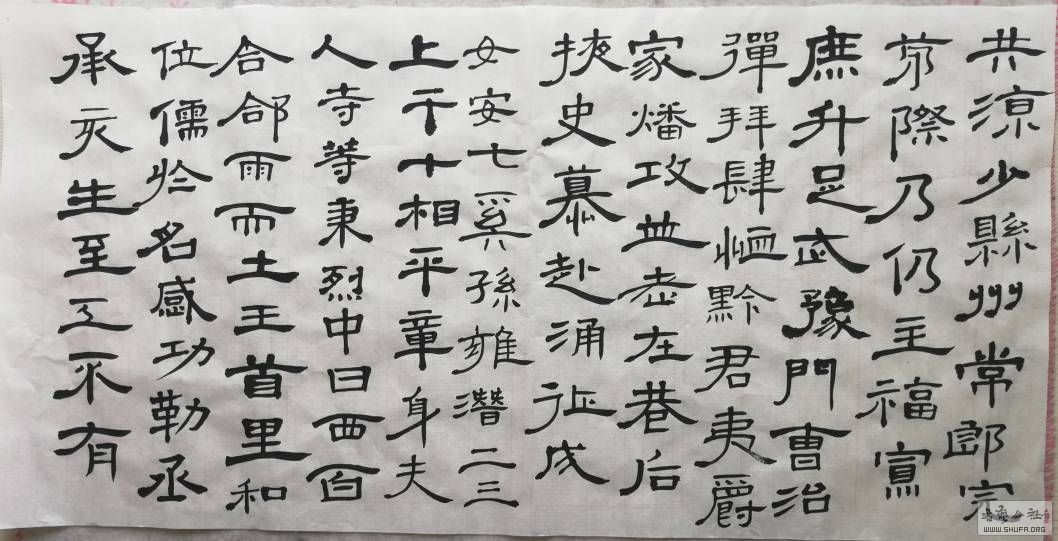 共凉少縣州常郎完
際乃仍主福
庶升足武豫門曹治
彈拜肆恤黔君夷爵
家燔攻並老在巷后
挾史慕赴涌征戍
女安七奚孫雍潛二三
上千十相平章身夫
人寺等東烈中曰西百
合郃雨而土王首里和
位儒於名感功勒丞
承亥生至工不有
WWW.SHUFA.ORG